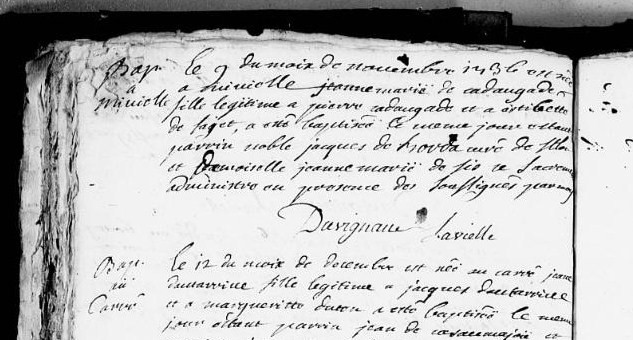 Bap. le 9 du moix de novembre 1736 est née
à a miuielle jeanne marie de cadaugade
miuielle fille legitime a pierre cadaugade et a
de faget, a esté baptisée le meme jour estant
parrin noble jacques de borda curé de
et Damoiselle jeanne marie de sis le
administré en presence des soussignés par moy
Duvignau Lavielle
Bap. le 12 du moix de decembre est née au carré jeane
au fille legitime a jacques
Carré et a margueritte a esté baptisée le meme
jour estant parrin jean de et